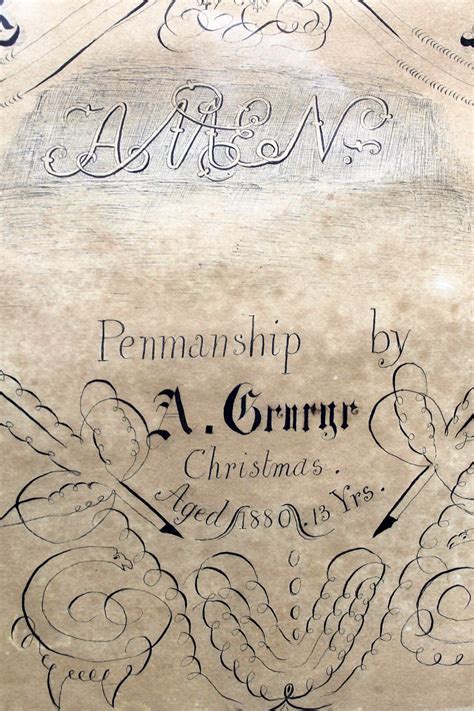 AMEN.
Penmanship by
A. George
Christmas.
Aged 1880. 13 Yrs.